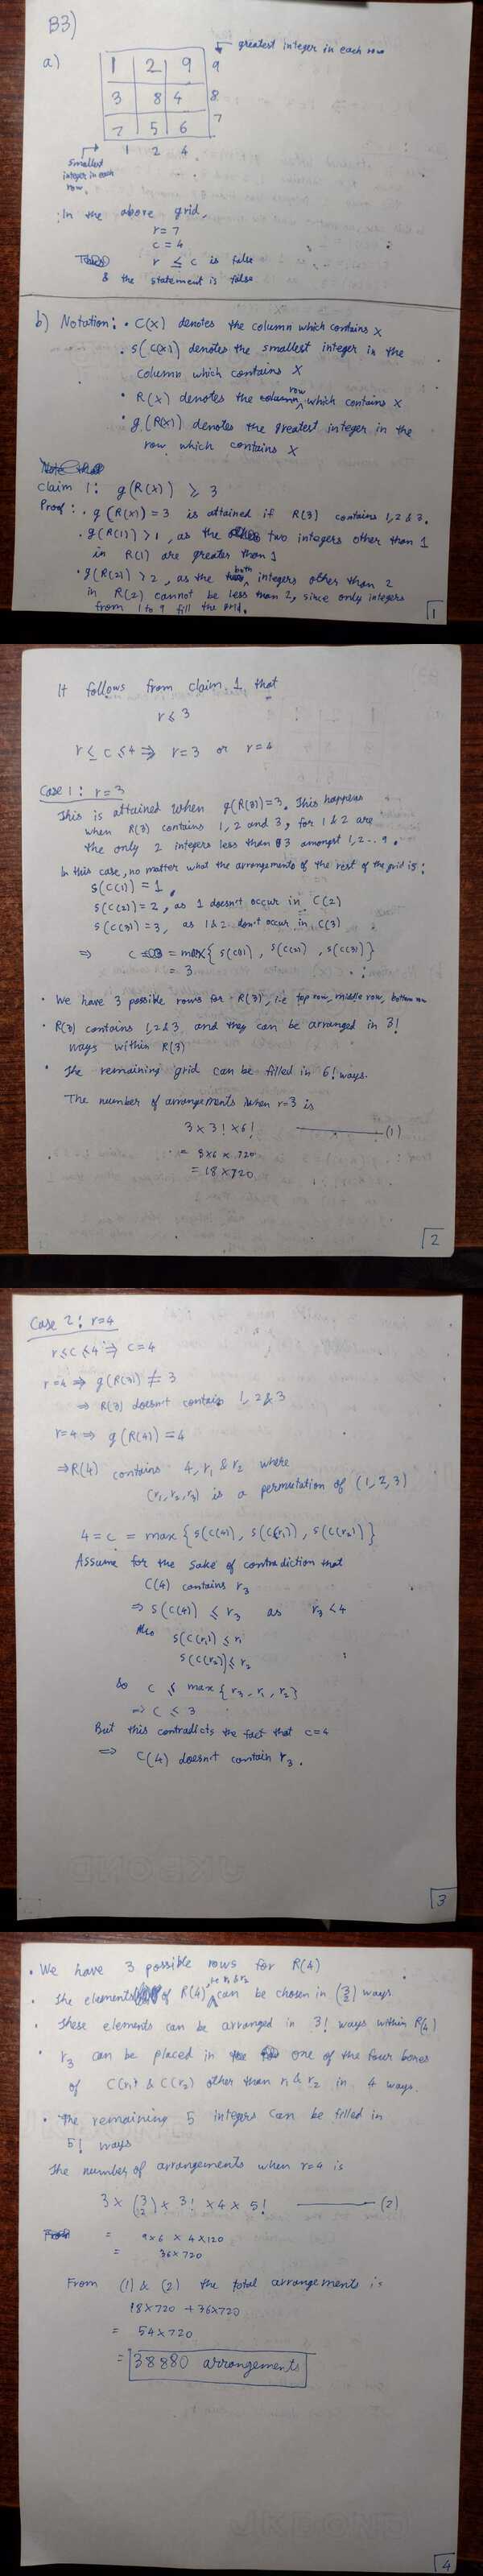 B3)
a)
greatest integer in each row
1 2 9 9
3 8 4 8
7 5 6 7
1 2 4
smallest
integer in each
row.
In the above grid,
r = 7
c = 4
r ≤ c is false
& the statement is false
b) Notation: • C(x) denotes the column which contains x
• S(C(x)) denotes the smallest integer in the
column which contains x
• R(x) denotes the row which contains x
• g(R(x)) denotes the greatest integer in the
row which contains x
claim 1: g(R(x)) ≥ 3
Proof: • g(R(x)) = 3 is attained if R(3) contains 1, 2 & 3.
• g(R(1)) > 1, as the two integers other than 1
in R(1) are greater than 1
• g(R(2)) > 2, as the both integers other than 2
in R(2) cannot be less than 2, since only integers
from 1 to 9 fill the grid.
1
It follows from claim 1 that
r ≤ 3
r ≤ c ≤ 4 ⇒ r = 3 or r = 4
Case 1: r = 3
This is attained when g(R(3)) = 3. This happens
when R(3) contains 1, 2 and 3, for 1 & 2 are
the only 2 integers less than 3 amongst 1, 2 .. 9.
In this case, no matter what the arrangements of the rest of the grid is:
S(C(1)) = 1,
S(C(2)) = 2, as 1 doesn't occur in C(2)
S(C(3)) = 3, as 1 & 2 don't occur in C(3)
⇒ c = max{S(C(1)), S(C(2)), S(C(3))}
= 3
• We have 3 possible rows for R(3), i.e top row, middle row, bottom row
• R(3) contains 1, 2 & 3 and they can be arranged in 3!
ways within R(3)
• The remaining grid can be filled in 6! ways.
The number of arrangements when r = 3 is
3 × 3! × 6! (1)
= 3 × 6 × 720
= 18 × 720
2
Case 2: r = 4
r ≤ c ≤ 4 ⇒ c = 4
r = 4 ⇒ g(R(3)) ≠ 3
⇒ R(3) doesn't contain 1, 2 & 3
r = 4 ⇒ g(R(4)) = 4
⇒ R(4) contains 4, r₁ & r₂ where
(r₁, r₂, r₃) is a permutation of (1, 2, 3)
4 = c = max{S(C(4)), S(C(r₁)), S(C(r₂))}
Assume for the sake of contradiction that
C(4) contains r₃
⇒ S(C(4)) ≤ r₃ as r₃ < 4
Also S(C(r₁)) ≤ r₁
S(C(r₂)) ≤ r₂
So c ≤ max{r₃, r₁, r₂}
⇒ c ≤ 3
But this contradicts the fact that c = 4
⇒ C(4) doesn't contain r₃.
3
• We have 3 possible rows for R(4)
• The elements of R(4), i.e r₁ & r₂ can be chosen in (3 2) ways.
• These elements can be arranged in 3! ways within R(4)
• r₃ can be placed in one of the four boxes
of C(r₁) & C(r₂) other than r₁ & r₂ in 4 ways.
• The remaining 5 integers can be filled in
5! ways
The number of arrangements when r = 4 is
3 × (3 2) × 3! × 4 × 5! (2)
= 9 × 6 × 4 × 120
= 36 × 720
From (1) & (2) the total arrangements is
18 × 720 + 36 × 720
= 54 × 720
= 38880 arrangements
4